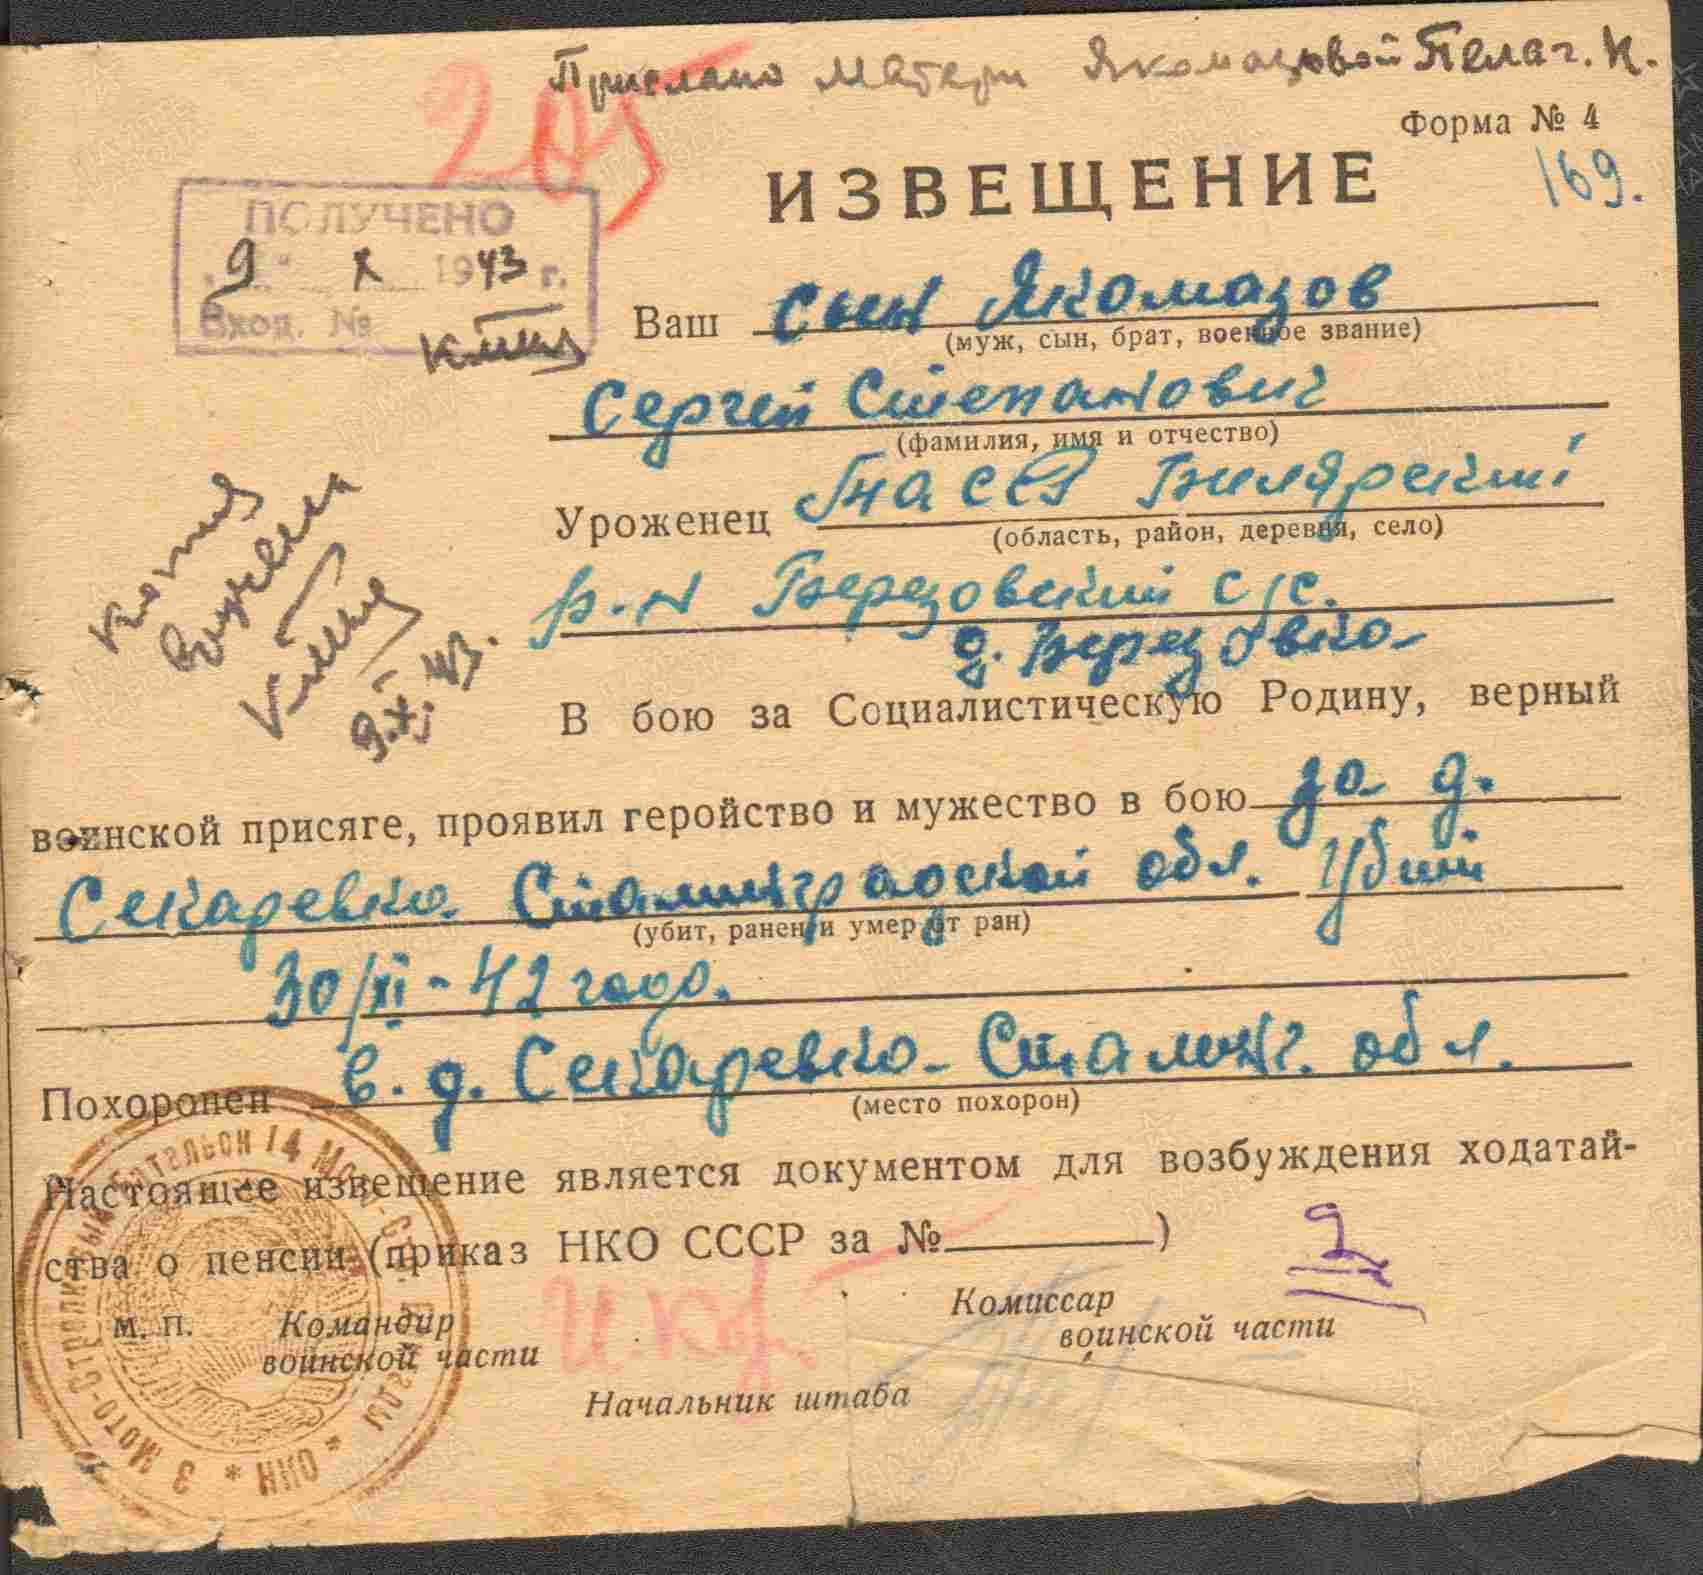 Прислано матери Якомазовой Пелаг. К.
205
Форма № 4
169.
ИЗВЕЩЕНИЕ
ПОЛУЧЕНО
„9“ X 1943 г.
Вход. №
Ваш сын Якомазов
(муж, сын, брат, военное звание)
Сергей Степанович
(фамилия, имя и отчество)
Уроженец ТАССР Билярский
(область, район, деревня, село)
р-н Березовский с/с.
д. Березовка
Копия
вручена
9.X.43.
В бою за Социалистическую Родину, верный
воинской присяге, проявил геройство и мужество в бою за д.
Секаревка Сталинградской обл. Убит
(убит, ранен и умер от ран)
30/XII-42 года.
Похоронен в. д. Секаревка Сталинг. обл.
(место похорон)
Настоящее извещение является документом для возбуждения ходатай-
ства о пенсии (приказ НКО СССР за № )
м. п. Командир
воинской части
Комиссар
воинской части
Начальник штаба
3 МОТО-СТРЕЛКОВЫЙ БАТАЛЬОН 14 МОТО-СТР. БРИГАДЫ * ОНН *